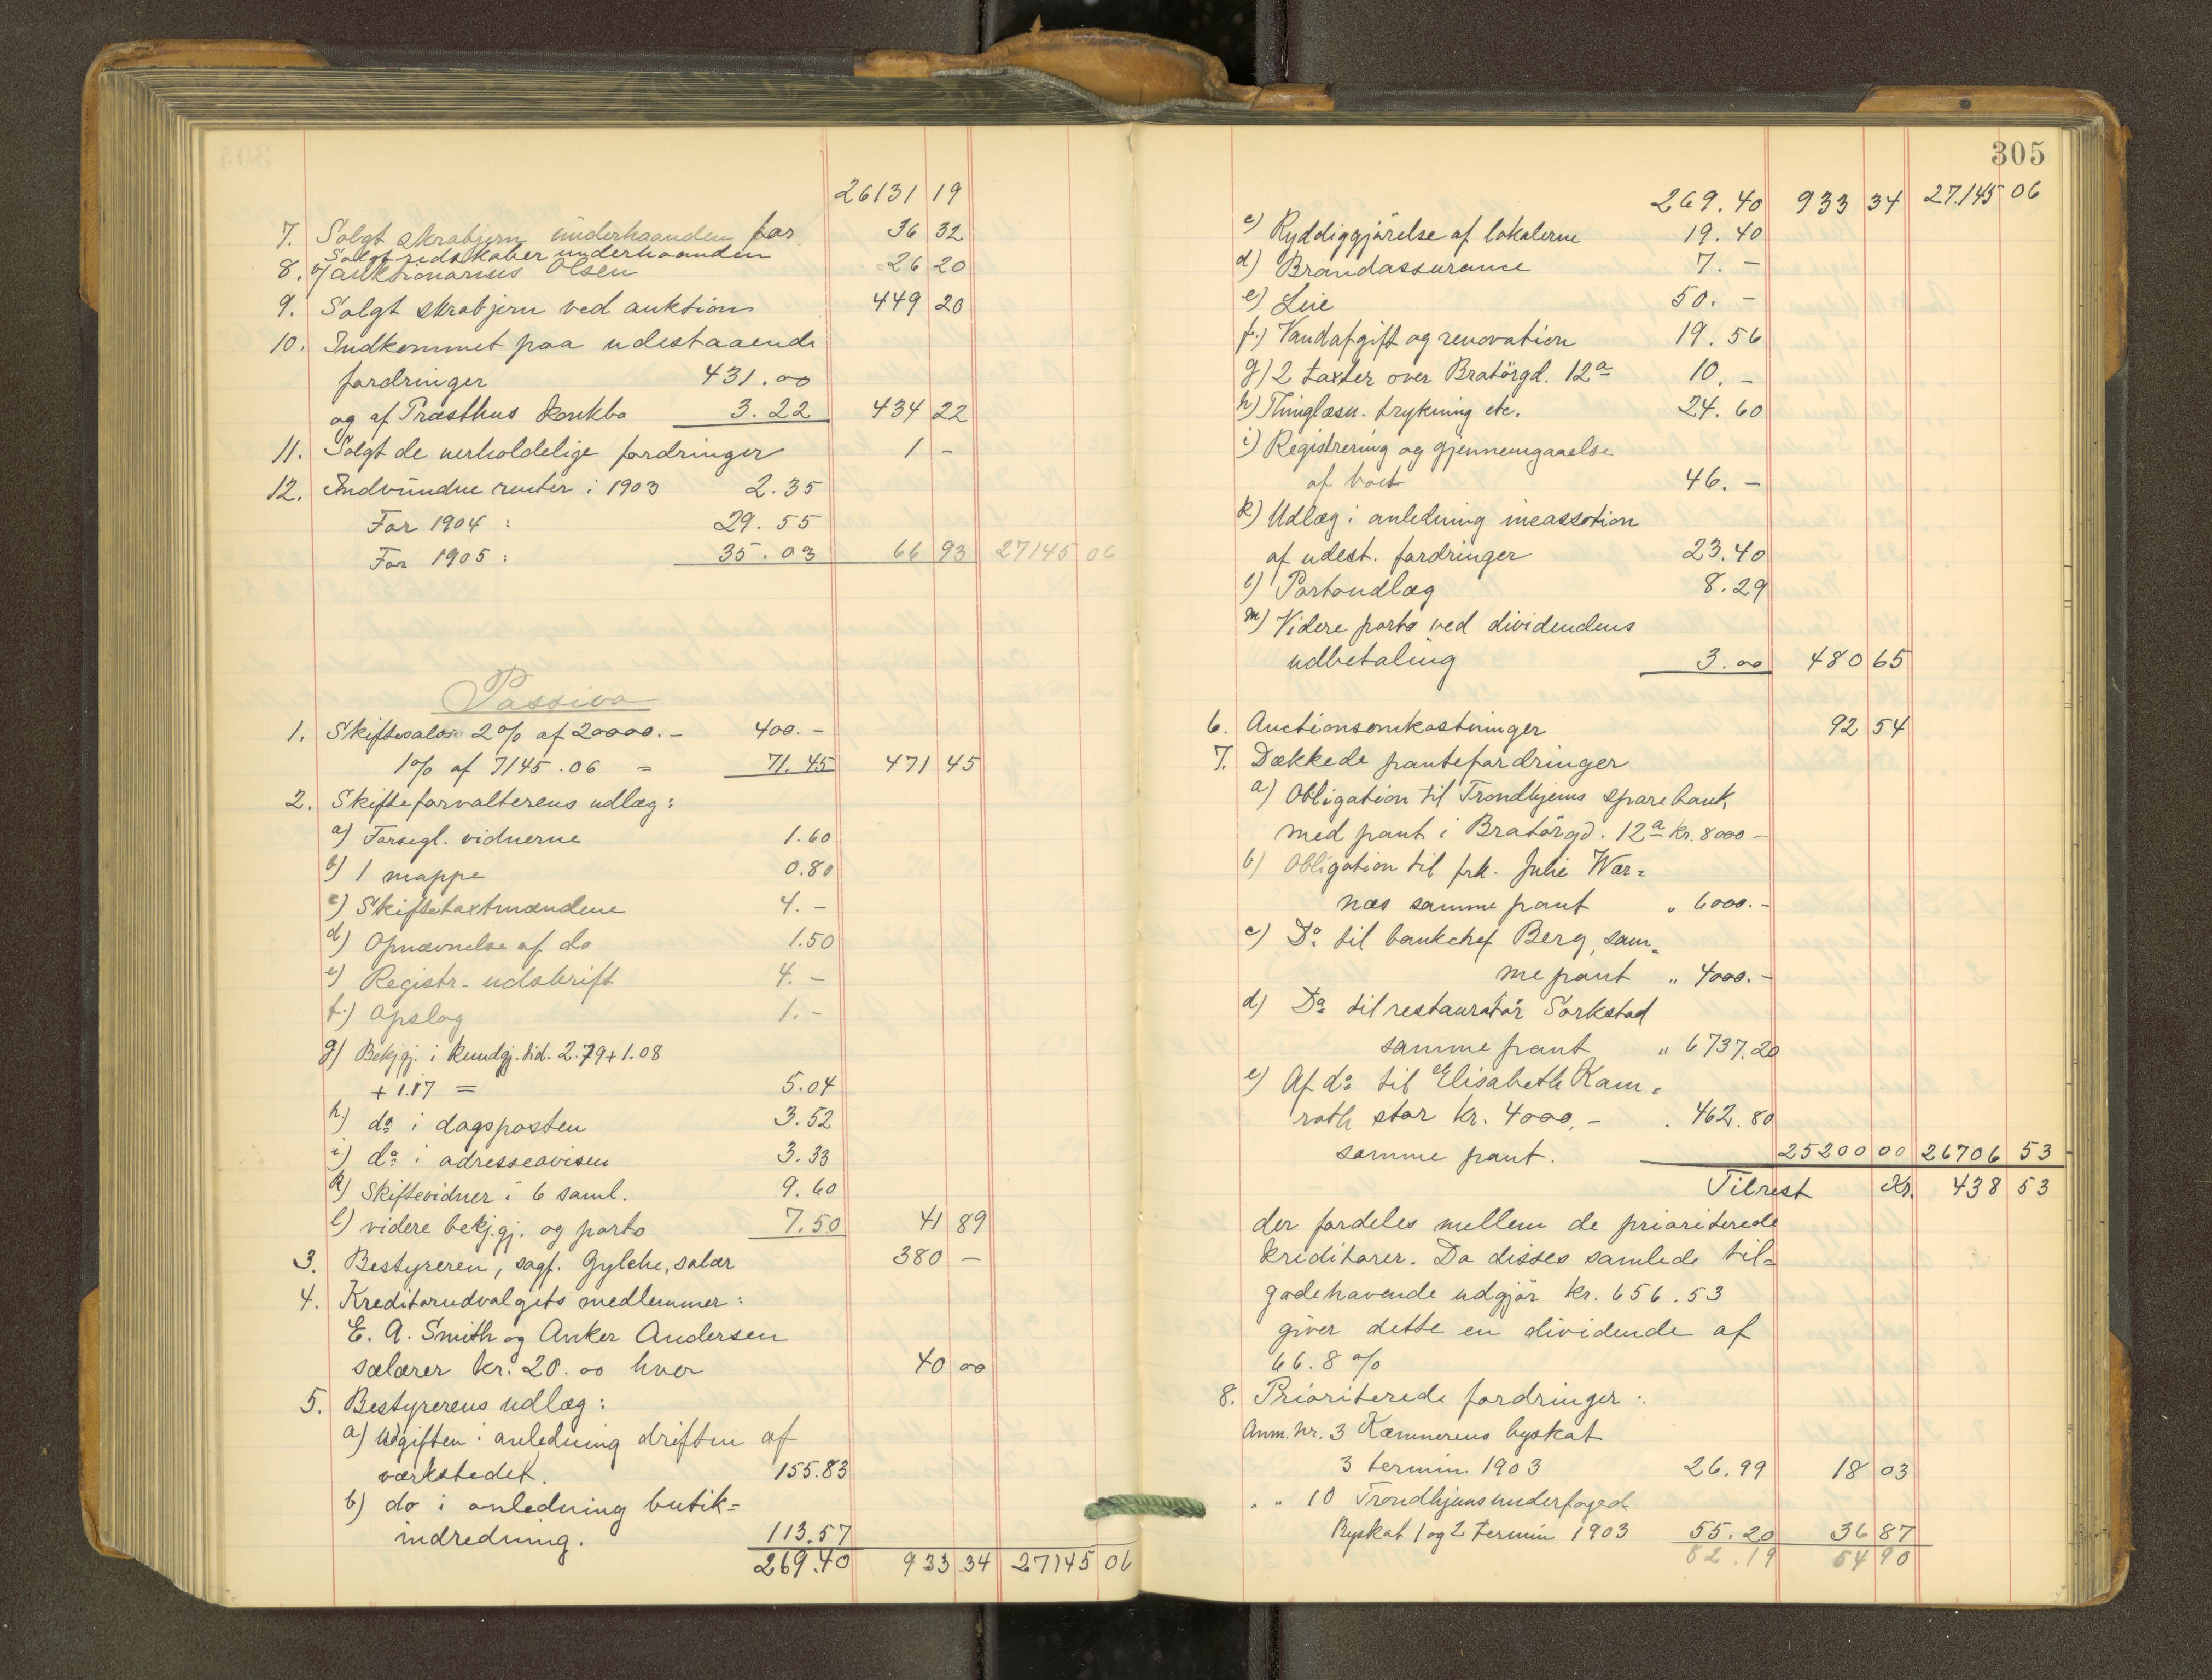 26131 19
7. Solgt skrabjern underhaanden for 36 32
Solgt redskaber underhaanden
8. v/ auktionarius Olsen 26 20
9. Solgt skrabjern ved auktion 449 20
10. Indkommet paa udestaaende
fordringer 431.00
og af Præsthus konkbo 3.22 434 22
11. Solgt de uerholdelige fordringer 1 -
12. Indvundne renter i 1903 2.35
For 1904 : 29.55
For 1905 : 35.03 66 93 27145 06
Passiva
1. Skiftesalær 2% af 20000.- 400.-
1% af 7145.06 = 71.45 471 45
2. Skifteforvalterens udlæg:
a) Forsegl. vidnerne 1.60
b) 1 mappe 0.80
c) Skiftetaxtmændene 4.-
d) Opnævnelse af do 1.50
e) Registr. udskrift 4.-
f.) Opslag 1.-
g) Bekjgj. i kundgj. tid. 2.79+1.08
+1.17 = 5.04
h.) do i dagsposten 3.52
i) do i adresseavisen 3.33
k) Skiftevidner i 6 saml. 9.60
l) videre bekj.gj. og porto 7.50 41 89
3. Bestyreren, sagf. Gylche, salær 380 -
4. Kreditorudvalgets medlemmer:
E. A. Smith og Anker Andersen
salærer kr. 20.00 hver 40 00
5. Bestyrerens udlæg:
a) Udgiften i anledning driften af
værkstedet. 155.83
b) do i anledning butik=
indredning. 113.57
269.40 933 34 27145 06
305
269.40 933 34 27.145 06
c) Ryddiggjörelse af lokalerne 19.40
d) Brandassurance 7.-
e) Leie 50.-
f.) Vandafgift og renovation 19.56
g) 2 taxter over Bratörgd. 12a 10.-
h) Thinglæsn. trykning etc. 24.60
i) Registrering og gjennemgaaelse
af boet 46.-
k) Udlæg i anledning incassation
af udest. fordringer 23.40
l) Portoudlæg 8.29
m) Videre porto ved dividendens
udbetaling 3.00 480 65
6. Auctionsomkostninger 92 54
7. Dækkede pantefordringer
a) Obligation til Trondhjems sparebank
med pant i Bratörgd. 12a kr. 8000-
b) Obligation til frk. Julie Wær=
næs samme pant " 6000.-
c) Do til bankchef Berg, sam=
me pant " 4000.-
d) Do til restauratör Sorkstad
samme pant " 6737.20
e) Af do til Elisabeth Kam=
rath stor kr. 4000,- " 462.80
samme pant. 25200 00 26706 53
Tilrest Kr. 438 53
der fordeles mellem de prioriterede
kreditorer. Da disses samlede til=
godehavende udgjör kr. 656.53
giver dette en dividende af
66.8 %
8. Prioriterede fordringer :
Anm. nr. 3 Kæmnerens byskat
3 termin 1903 26.99 18 03
" " 10 Trondhjems underfoged
Byskat 1 og 2 termin 1903 55.20 36 87
82.19 54 90